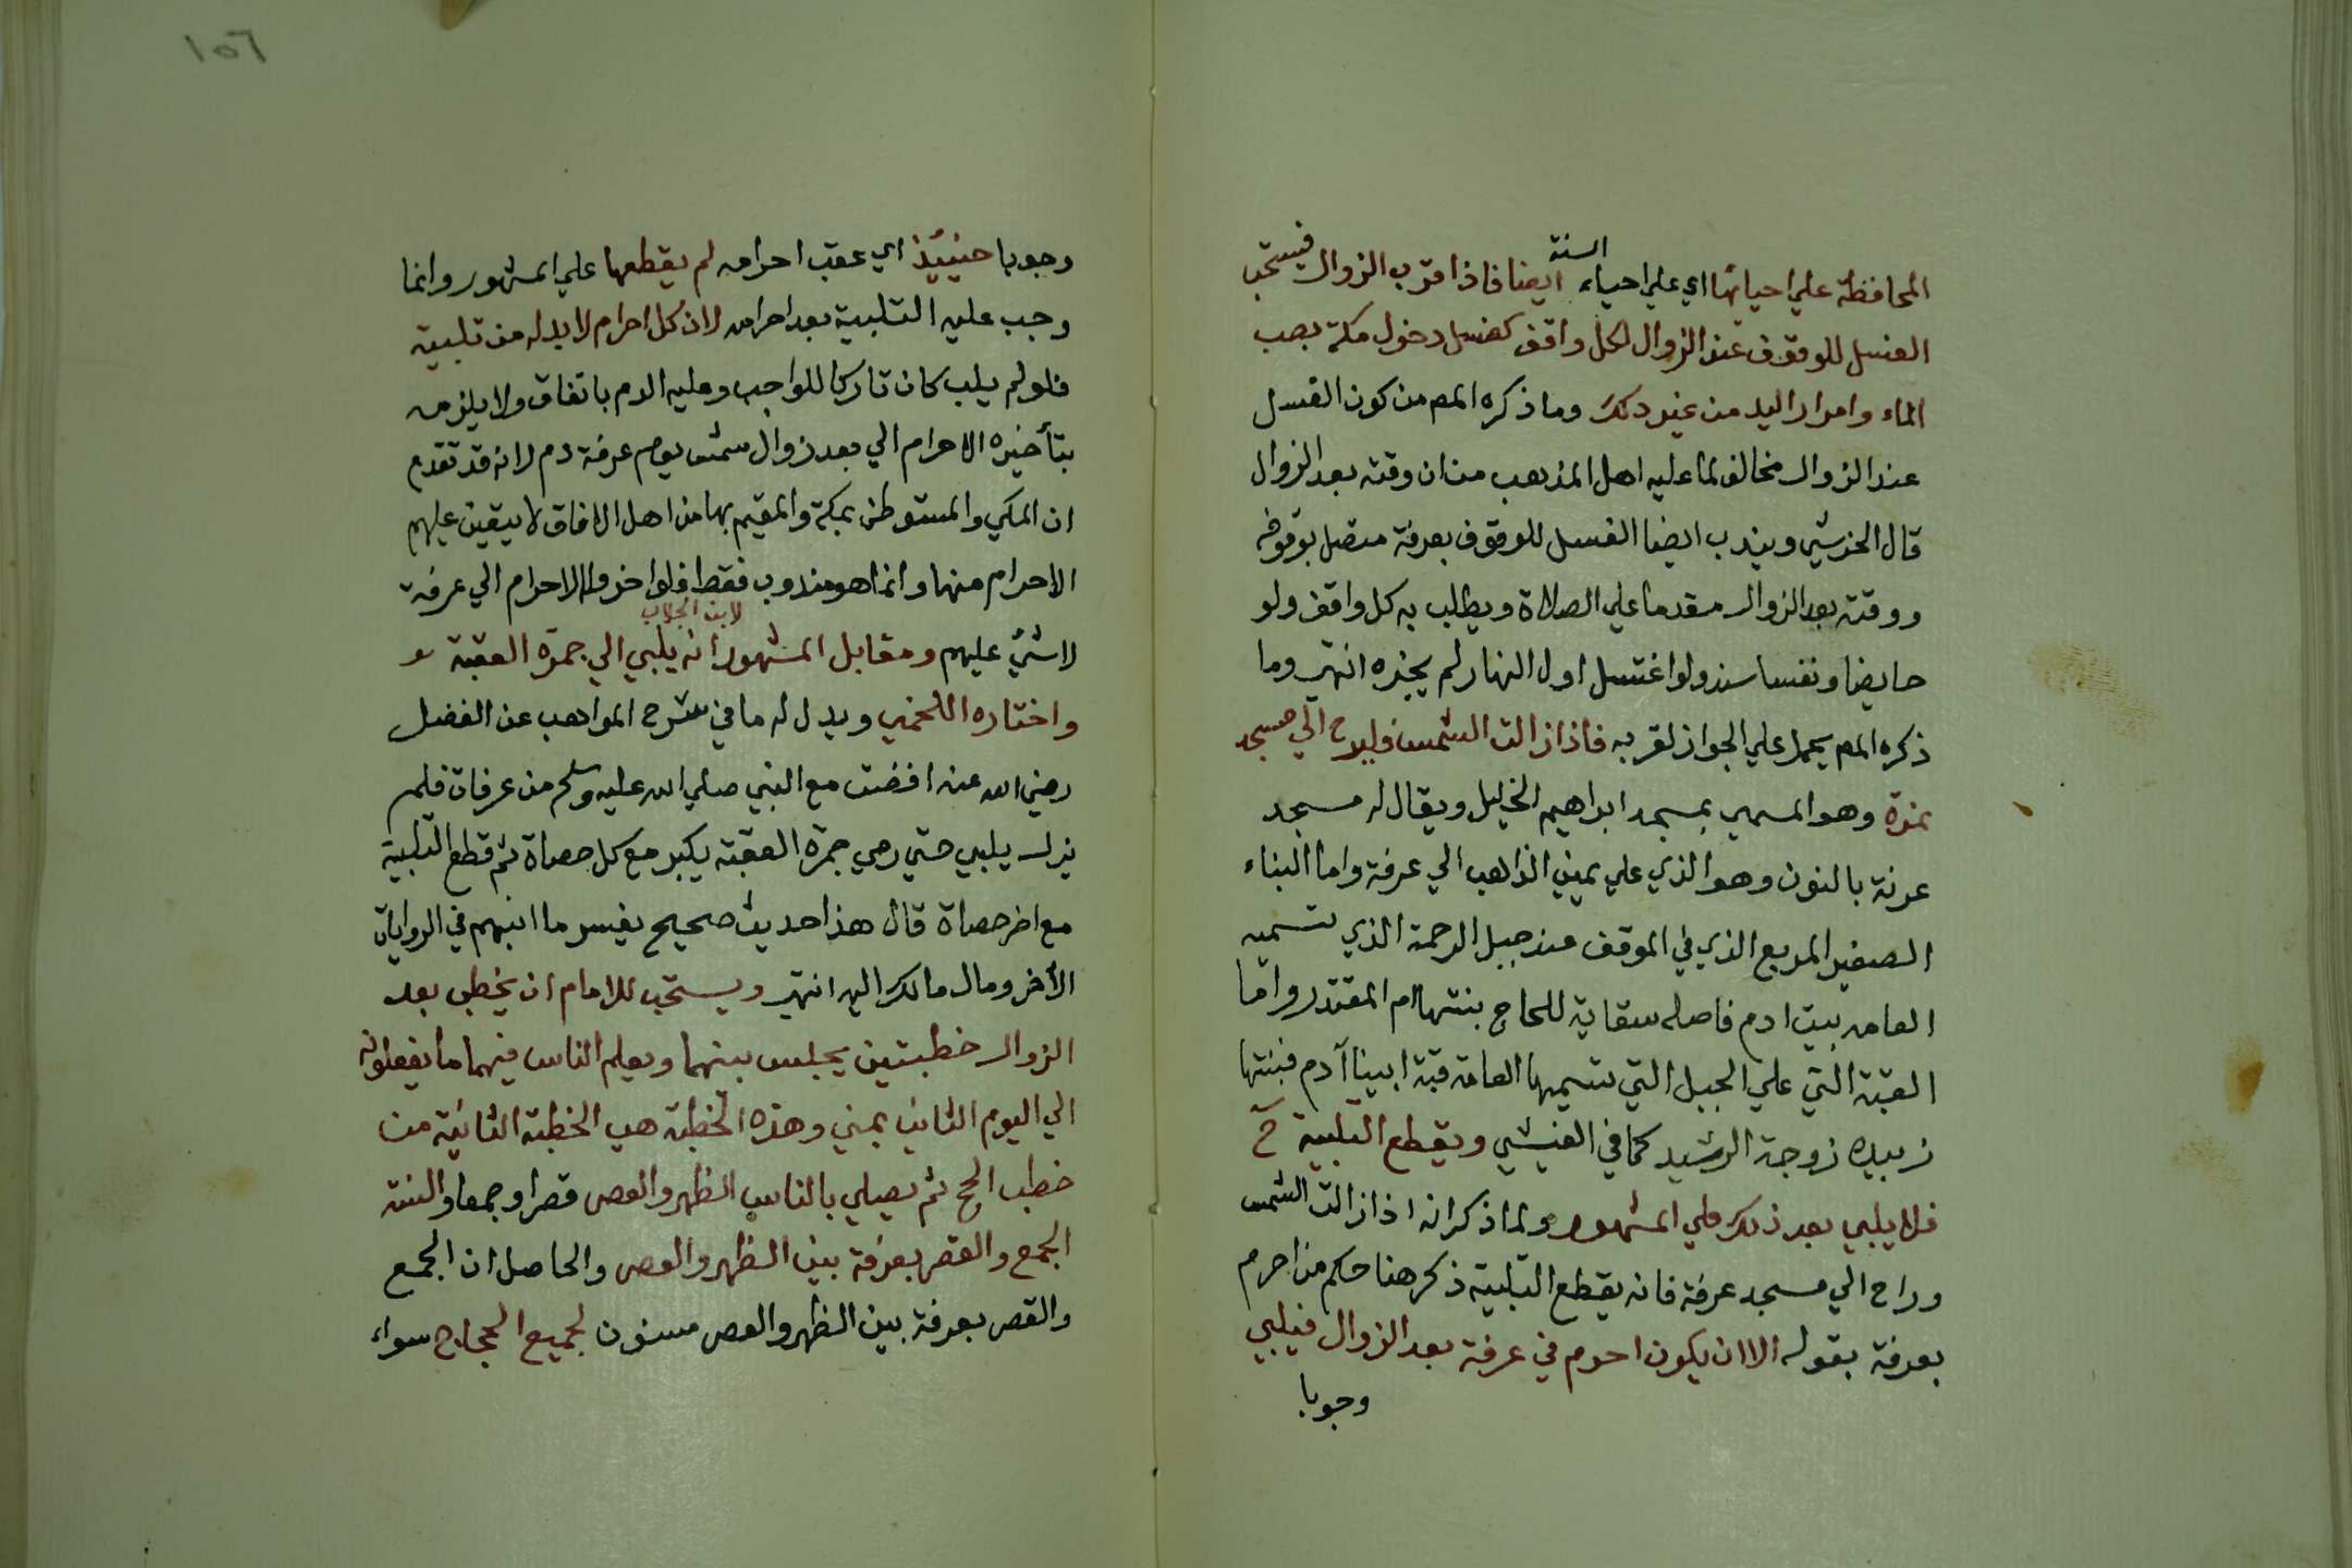 المحافظة علي احيائها اي علي احياء السنة ايضا فاذا قرب الزوال فيستحب
الغسل للوقوف عند الزوال لكل واقف كغسل دخول مكة بصب
الماء وامرار اليد من غير دلك وما ذكره المص من كون الغسل
عند الزوال مخالف لما عليه اهل المذهب من ان وقته بعد الزوال
قال الخرشي ويندب ايضا الغسل للوقوف بعرفة متصل بوقوفه
ووقته بعد الزوال مقدما علي الصلاة ويطلب به كل واقف ولو
حايضا ونفسا سند ولو اغتسل اول النهار لم يجزه انتهي وما
ذكره المص يحمل علي الجواز لقربه فاذا زالت الشمس فليرح الي مسجد
نمرة وهو المسمي بمسجد ابراهيم الخليل ويقال له مسجد
عرنة بالنون وهو الذي علي يمين الذاهب الي عرفة واما البناء
الصغير المربع الذي في الموقف عند جبل الرحمة الذي تسميه
العامه بيت ادم فاصله سقاية للحاج بنتها ام المقتدر واما
القبة التي علي الجبل التي تسميها العامة قبة ابينا آدم فبنتها
زبيده زوجة الرشيد كما في الفيشي ويقطع التلبية ح
فلا يلبي بعد ذلك علي المشهور ولما ذكر انه اذا زالت الشمس
وراح الي مسجد عرفة فانه يقطع التلبية ذكر هنا حكم من احرم
بعرفة بقوله الا ان يكون احرم في عرفة بعد الزوال فيلبي
وجوبا
١٥٦
وجوبا حينيئذ اي عقب احرامه لم يقطعها علي المشهور وانما
وجب عليه التلبية بعد احرامه لان كل احرام لا بد له من تلبية
فلو لم يلب كان تاركا للواجب وعليه الدم باتفاق ولا يلزمه
بتأخيره الاحرام الي بعد زوال شمس يوم عرفة دم لانه قد تقدم
ان المكي والمستوطن بمكة والمقيم بها من اهل الافاق لا يتعين عليهم
الاحرام منها وانما هو مندوب فقط فلو اخروا الاحرام الي عرفة
لا شئ عليهم ومقابل المشهور لابن الجلاب انه يلبي الي جمرة العقبة
واختاره اللخمي ويدل له ما في شرح المواهب عن الفضل
رضي الله عنه افضت مع النبي صلي الله عليه وسلم من عرفات فلم
يزل يلبي حتي رمي جمرة العقبة يكبر مع كل حصاة ثم قطع التلبية
مع اخر حصاة قال هذا حديث صحيح يفسر ما انبهم في الروايات
الأخر ومال مالك اليه انتهي ويستحب للامام ان يخطب بعد
الزوال خطبتين يجلس بينهما ويعلم الناس فيهما ما يفعلونه
الي اليوم الثاني بمني وهذه الخطبة هي الخطبة الثانية من
خطب الحج ثم يصلي بالناس الظهر والعصر قصرا وجمعا والسنة
الجمع والقصر بعرفة بين الظهر والعصر والحاصل ان الجمع
والقصر بعرفة بين الظهر والعصر مسنون لجميع الحجاج سواء